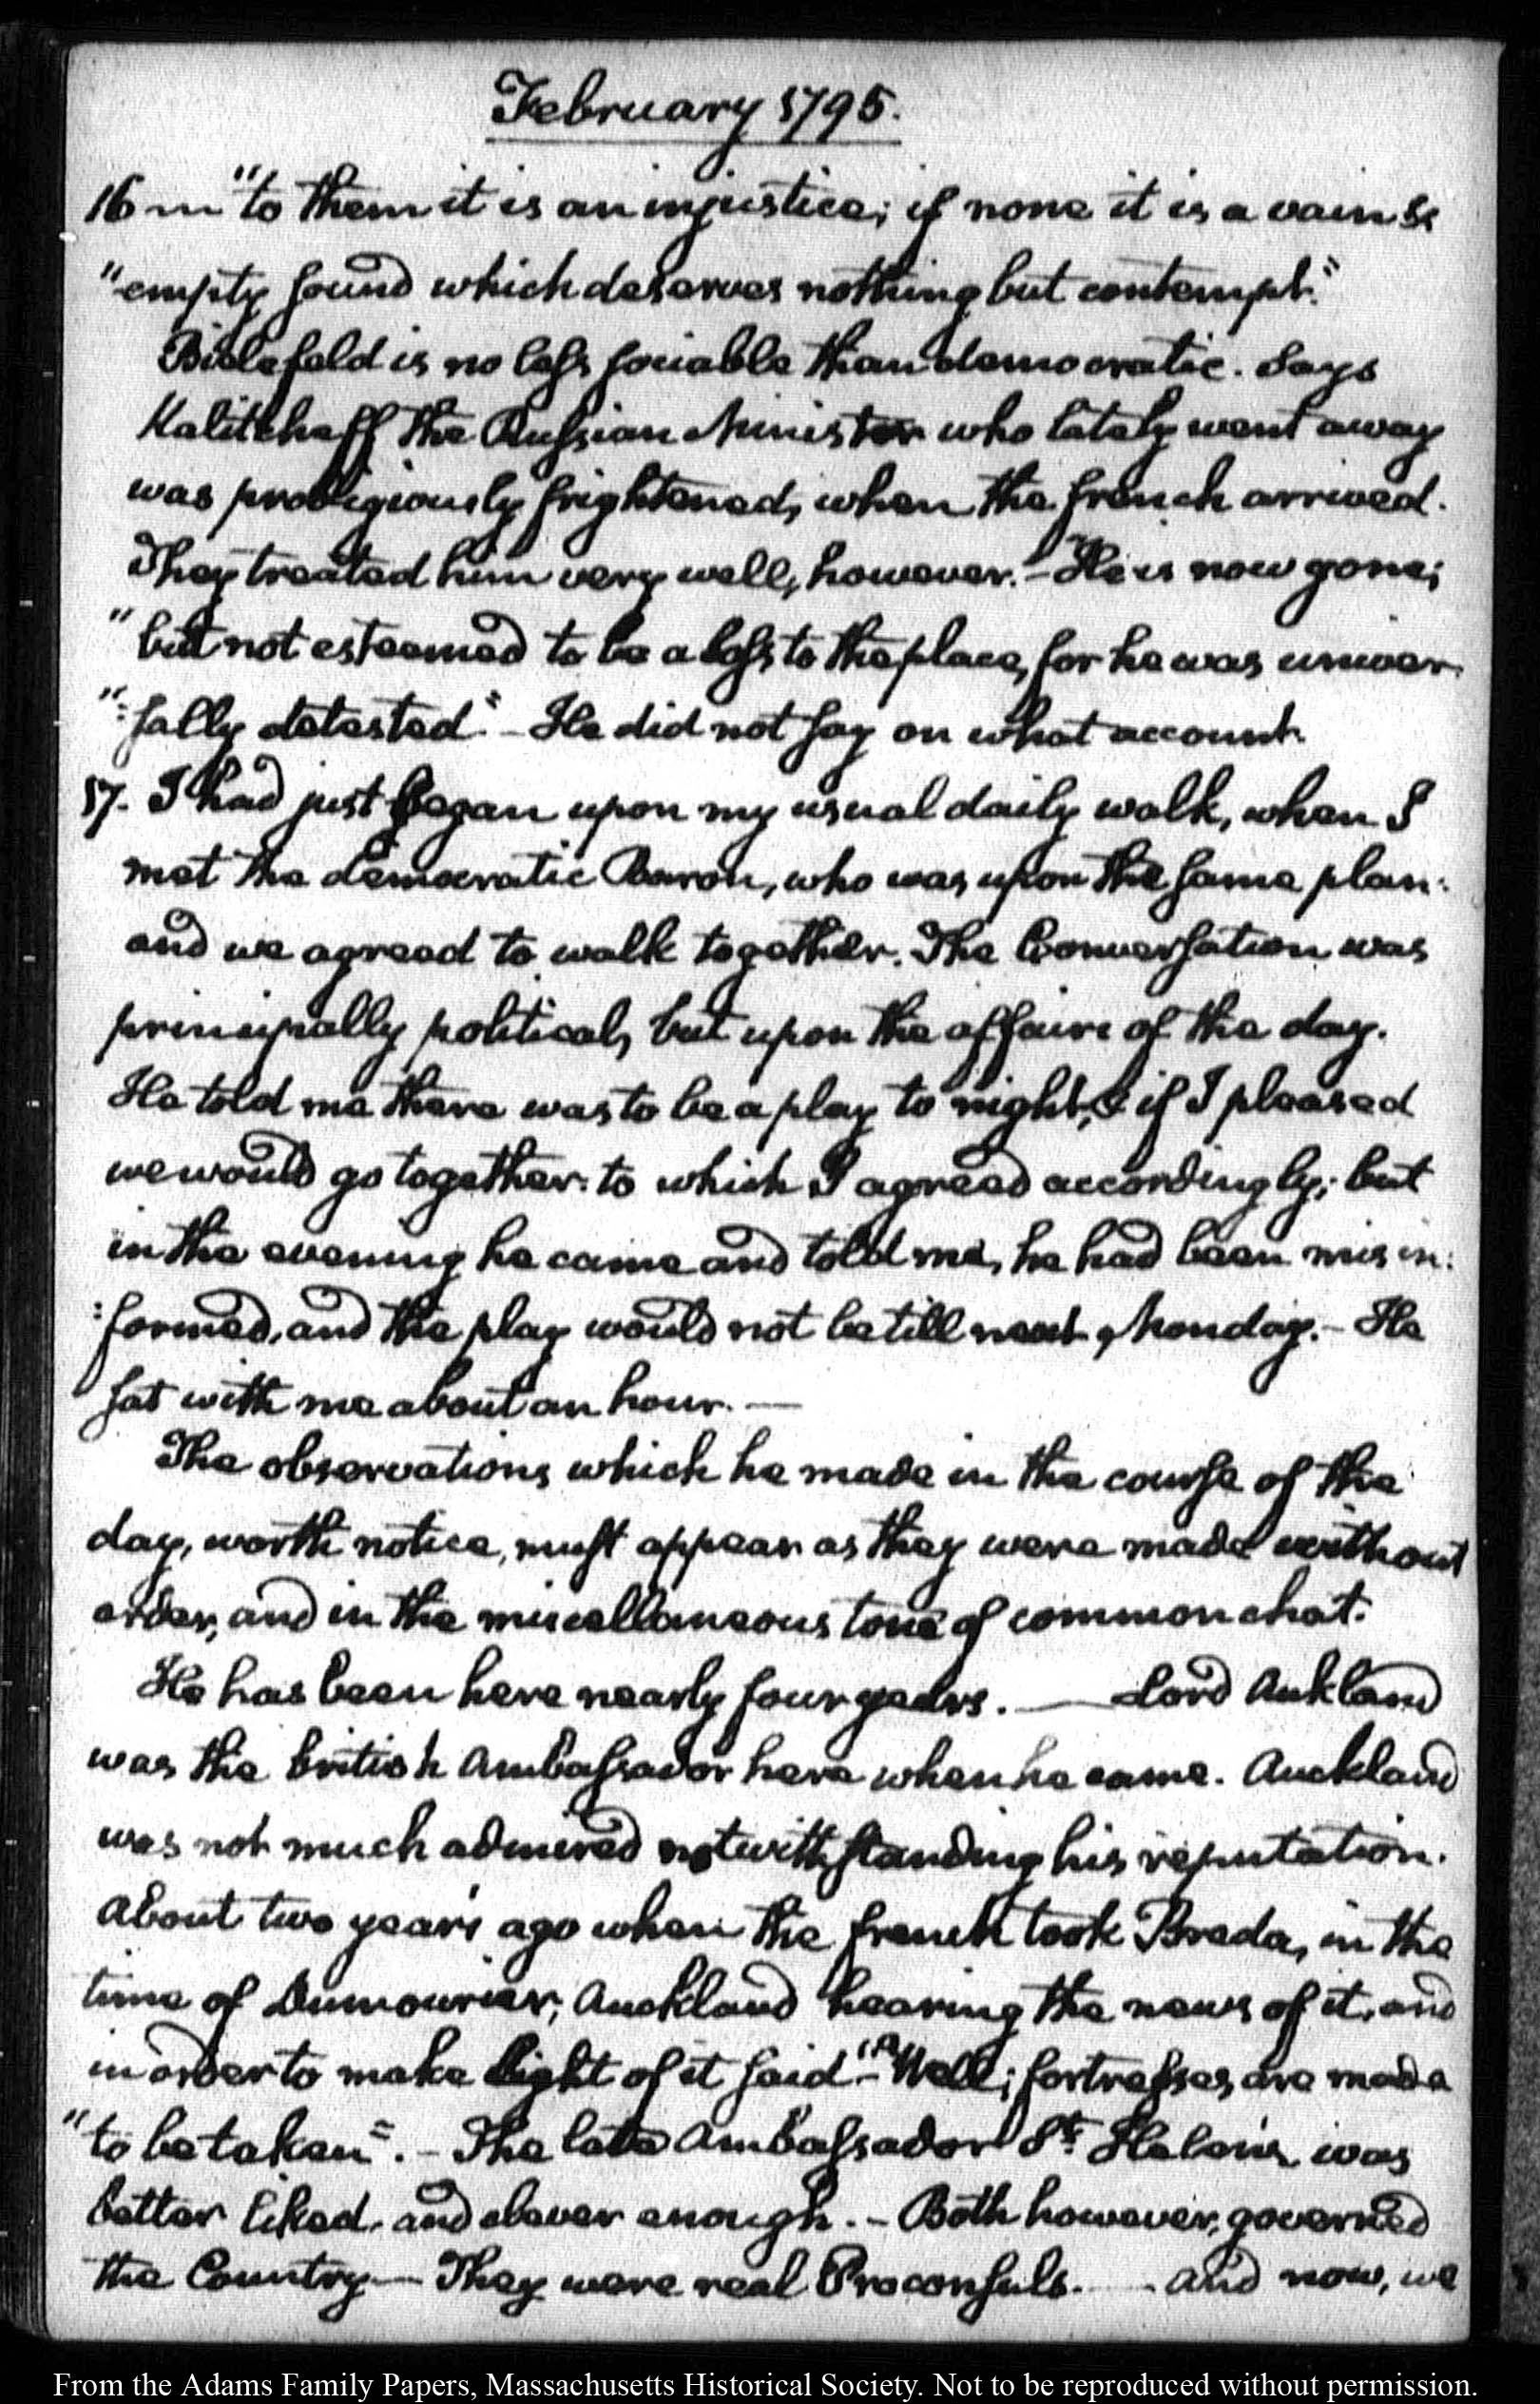 February 1795.
16 m "to them it is an injustice; if none it is a vain &
"empty sound which deserves nothing but contempt."
Bielefeld is no less sociable than democratic. Says
Kalitcheff the Russian Minister who lately went away
was prodigiously frightened, when the french arrived.
They treated him very well, however. - "He is now gone;
"but not esteemed to be a loss to the place, for he was univer
":sally detested." - He did not say on what account.
17. I had just began upon my usual daily walk, when I
met the democratic Baron, who was upon the same plan:
and we agreed to walk together. The Conversation was
principally political, but upon the affairs of the day.
He told me there was to be a play to night, & if I pleased
we would go together: to which I agreed accordingly; but
in the evening he came and told me, he had been misin:
:formed, and the play would not be till next Monday. - He
sat with me about an hour. —
The observations which he made in the course of the
day, worth notice, must appear as they were made without
order, and in the miscellaneous tone of common chat.
He has been here nearly four years. — Lord Aukland
was the british Ambassador here when he came. Auckland
was not much admired notwithstanding his reputation.
About two years ago when the french took Breda, in the
time of Dumourier, Auckland hearing the news of it, and
in order to make light of it said - "Well; fortresses are made
"to be taken". - The late Ambassador St. Helen's was
better liked, and clever enough. - Both however, governed
the Country — They were real Proconsuls. — And now, we
From the Adams Family Papers, Massachusetts Historical Society. Not to be reproduced without permission.